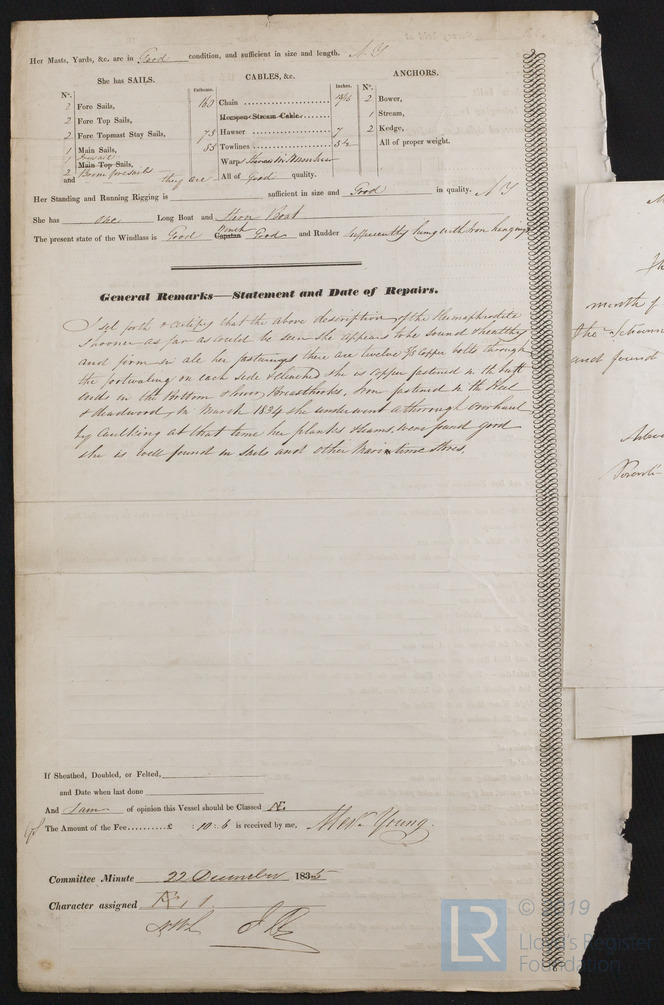 Her Masts, Yards, &c. are in Good condition, and sufficient in size and length. A Y
She has SAILS. CABLES, &c. ANCHORS.
Nº. Fathoms. Inches. Nº.
2 Fore Sails, 160 Chain 2 Bower,
2 Fore Top Sails, Hempen Stream Cable 1 Stream,
2 Fore Topmast Stay Sails, 75 Hawser 7 2 Kedge,
1 Main Sails, 85 Towlines All of proper weight.
Main Top Sails, Warp
and 2 they are All of good quality.
Her Standing and Running Rigging is sufficient in size and Good in quality. A Y
She has one Long Boat and Stern Boat
The present state of the Windlass is Good Capstan Winch Good and Rudder sufficiently hung with Iron hangings
General Remarks—Statement and Date of Repairs.
I set forth & certify that the above description of the Hemaphrodite
Shooner as far as could be seen she appears to be sound & healthy
and firm in all her fastnings there are twelve Copper bolts through
the footwaling on each side & clinched she is Copper fastened in the butt
ends in the Bottom & lower Breasthooks, Iron fastened in the Keel
& deadwood, In March 1834 she underwent a thorough overhaul
by Caulking at that time her planks & seams were found good
she is well found in Sails and other Maritime Stores.
If Sheathed, Doubled, or Felted,
and Date when last done
And I am of opinion this Vessel should be Classed Æ
The Amount of the Fee £ : 10 : 6 is received by me, Alexr Young
Committee Minute 22 December 1835
Character assigned
M
month of
the Schooner
and found
© 2019
LR
Lloyd's Register
Foundation